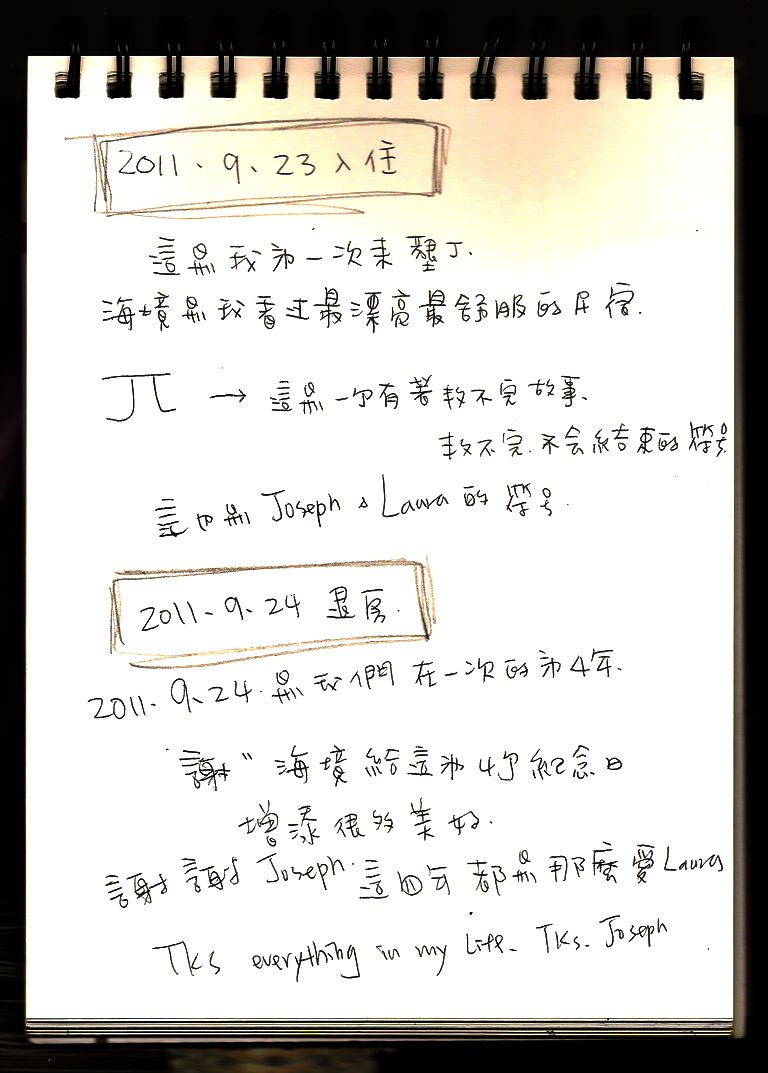 2011、9、23入住
這是我第一次來墾丁.
海境是我看过最漂亮最舒服的民宿.
π → 這是一个有著数不完故事、
数不完、不会結束的符号
這也是 Joseph & Laura 的符号.
2011、9、24 退房.
2011.9、24.是我們在一次的第4年.
謝" 海境給這第4个紀念日
增添很多美好.
謝謝 Joseph.這四年都是那麼愛Laura
Tks everything in my Life. Tks. Joseph